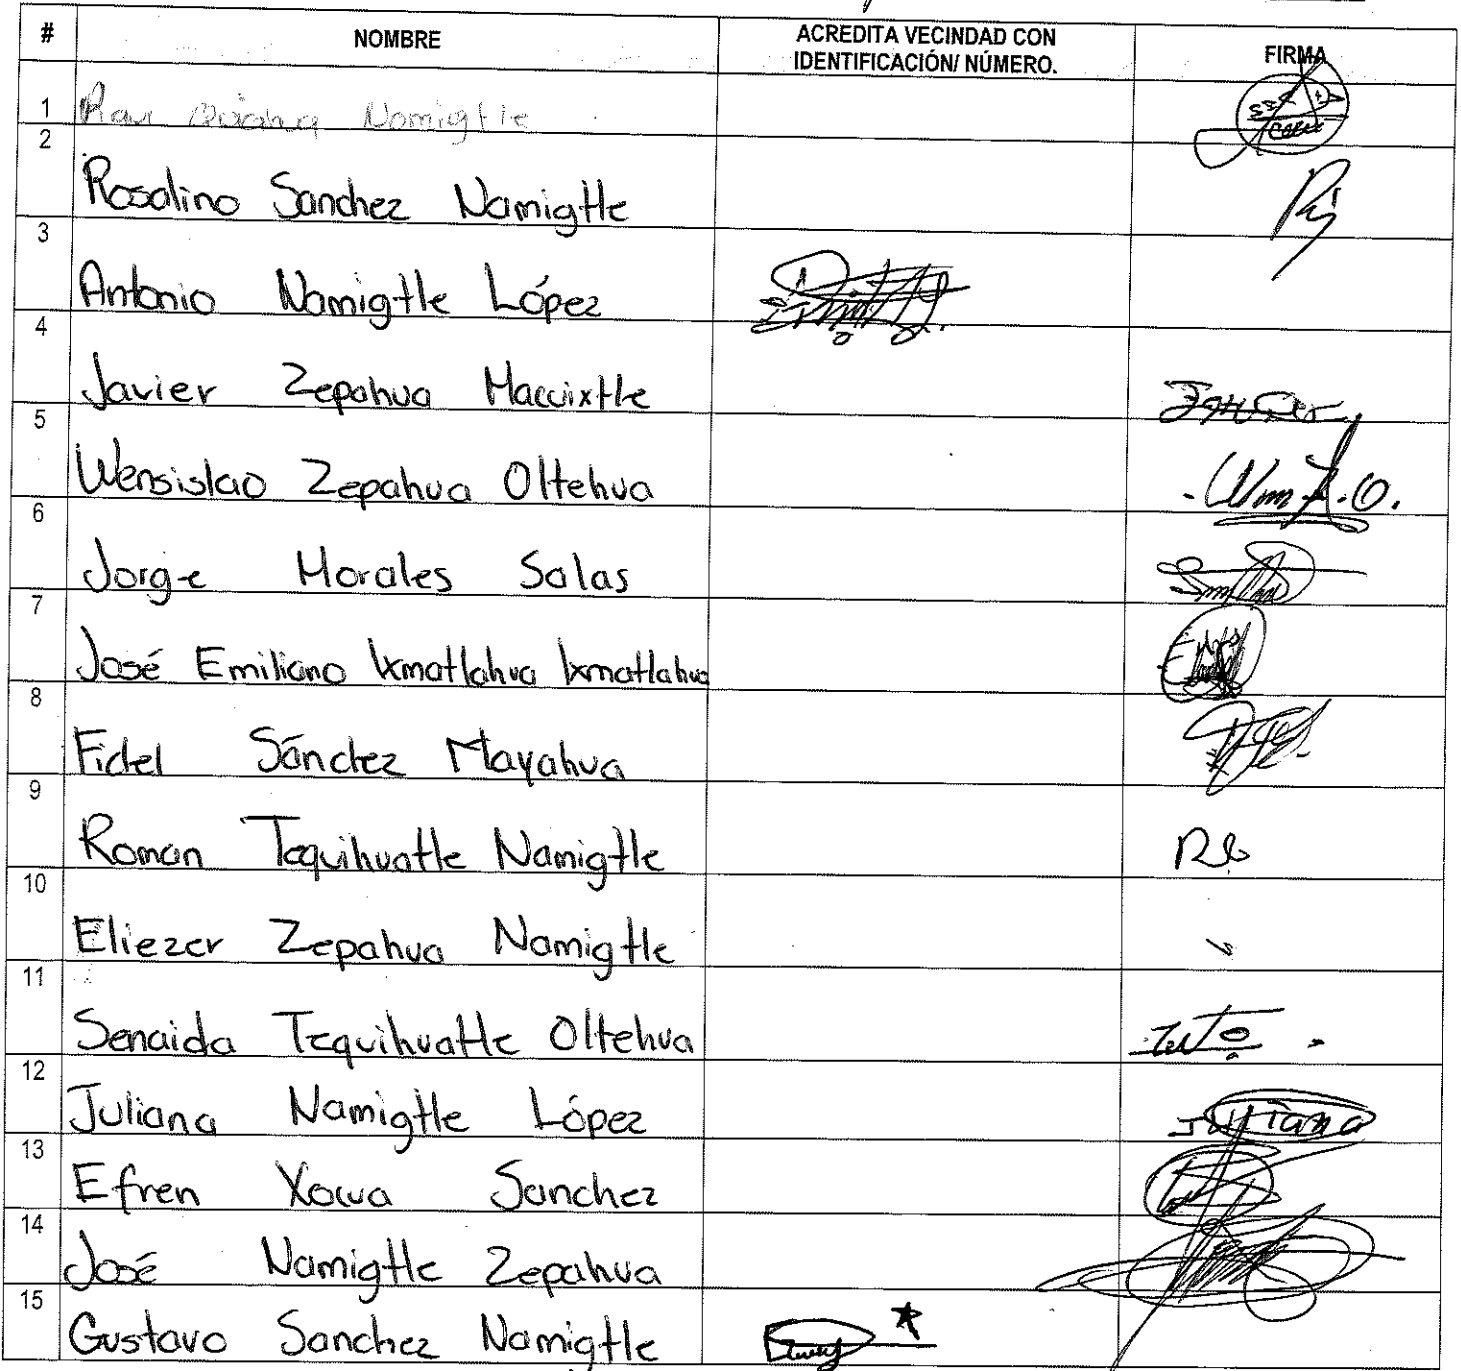 # NOMBRE ACREDITA VECINDAD CON IDENTIFICACIÓN/ NÚMERO. FIRMA
1 Namigtle
2 Rosalino Sanchez Namigtle
3 Antonio Namigtle López
4 Javier Zepahua Macuixtle
5 Wensislao Zepahua Oltehua
6 Jorge Morales Salas
7 José Emiliano Ixmatlahua Ixmatlahua
8 Fidel Sánchez Mayahua
9 Roman Tequihuatle Namigtle
10 Eliezer Zepahua Namigtle
11 Senaida Tequihuatle Oltehua
12 Juliana Namigtle López Juliana
13 Efren Xocua Sanchez
14 José Namigtle Zepahua
15 Gustavo Sanchez Namigtle